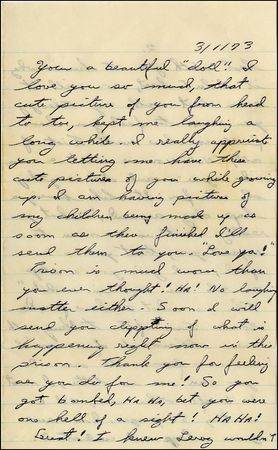 3/1/73
Your a beautiful "doll"! I
love you so much, that
cute picture of you from head
to toe, kept me laughing a
long while. I really appreciate
you letting me have these
cute pictures of you while growing
up. I am having pictures of
my children being made up as
soon as their finished I'll
send them to you. "Love ya!"
Prison is much worse than
you ever thought! HA! No laughing
matter either. Soon I will
send you clippeting of what is
happening right now in this
prison. Thank you for feeling
as you do for me! So you
got Bombed, Ha Ha, bet you were
one hell of a sight! HA HA!
I knew Leroy wouldn't